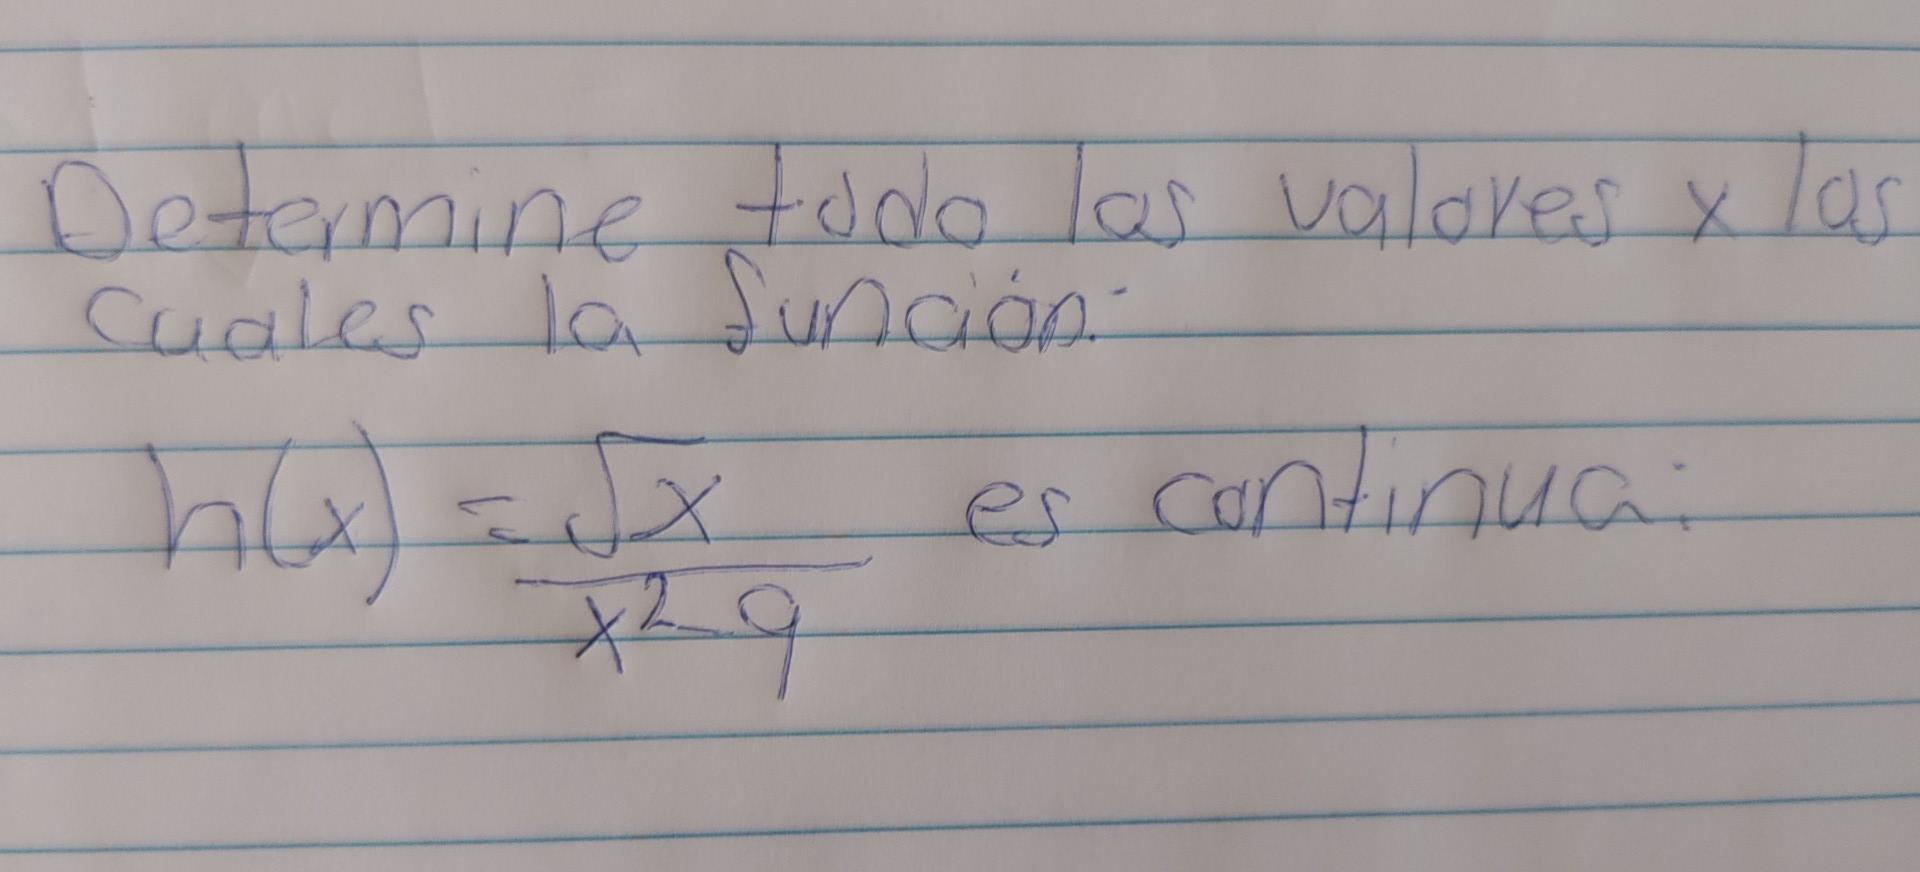 Determine todo las valores x las
cuales la función:
h(x) = √x / x² - 9 es continua: